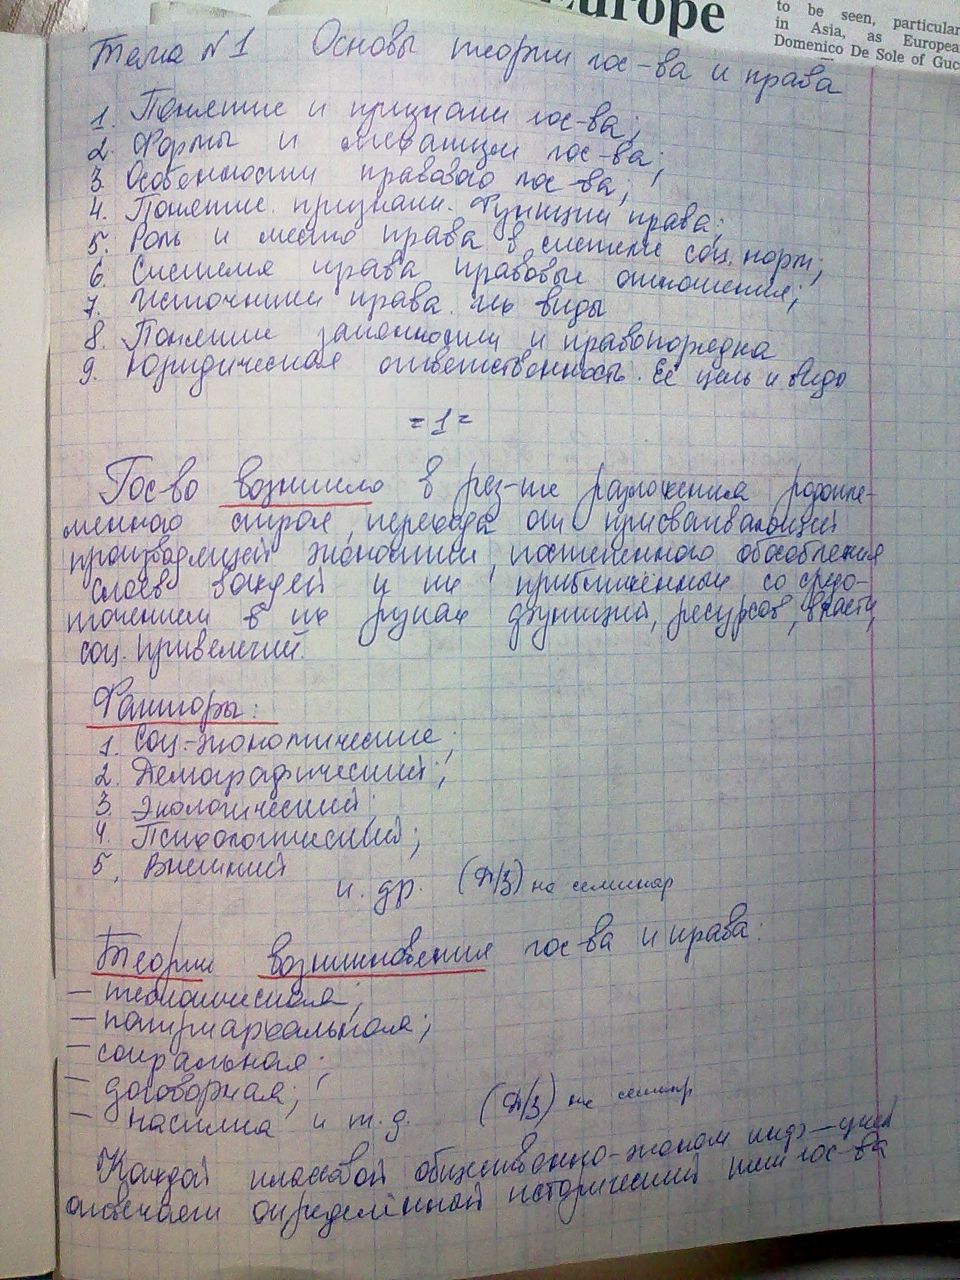 Europe
to be seen, particular
in Asia, as European
Domenico De Sole of Guc
Тема №1 Основы теории гос-ва и права
1. Понятие и признаки гос-ва;
2. Формы и механизм гос-ва;
3. Особенности правового гос-ва;
4. Понятие. признаки. Функции права;
5. Роль и место права в системе соц. норм;
6. Система права правовые отношения;
7. Источники права. Их виды
8. Понятие законности и правопорядка
9. Юридическая ответственность. Её цель и виды
= 1 =
Гос-во возникло в рез-те разложения родопле-
менного строя, перехода от присваивающей
производящей экономики, постепенного обособления
слоев вождей и их приближенных со средо-
точением в их руках функций, ресурсов, власти,
соц. привелегий.
Факторы:
1. Соц.-экономические;
2. Демографический;
3. Экологический;
4. Психологический;
5. Внешний
и др. (Д/З) на семинар
Теории возникновения гос-ва и права:
– теологическая;
– патриархальная;
– договорная;
– насилия и т.д. (Д/З) на семинар
Каждой классовой общественно-эконом
отвечает определённый исторический тип гос-ва